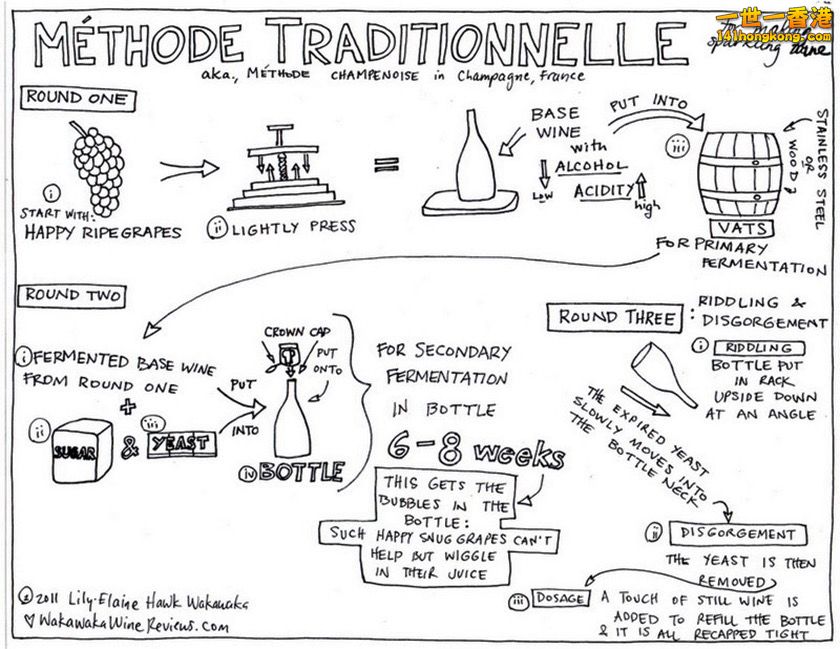 MÉTHODE TRADITIONNELLE
aka., MÉTHODE CHAMPENOISE in Champagne, France
一世一香港
141hongkong.com
sparkling wine
ROUND ONE
i
START WITH:
HAPPY RIPE GRAPES
ii LIGHTLY PRESS
=
BASE
WINE
with
ALCOHOL
Low
ACIDITY
high
PUT INTO
iii
STAINLESS STEEL
OR
WOOD
VATS
FOR PRIMARY
FERMENTATION
ROUND TWO
i FERMENTED BASE WINE
FROM ROUND ONE
+
ii SUGAR
&
iii YEAST
PUT
INTO
CROWN CAP
PUT
ONTO
iv BOTTLE
FOR SECONDARY
FERMENTATION
IN BOTTLE
6-8 weeks
THIS GETS THE
BUBBLES IN THE
BOTTLE:
SUCH HAPPY SNUG GRAPES CAN'T
HELP BUT WIGGLE
IN THEIR JUICE
ROUND THREE :
RIDDLING &
DISGORGEMENT
i RIDDLING
BOTTLE PUT
IN RACK
UPSIDE DOWN
AT AN ANGLE
THE EXPIRED YEAST
SLOWLY MOVES INTO
THE BOTTLE NECK
ii DISGORGEMENT
THE YEAST IS THEN
REMOVED
iii DOSAGE
A TOUCH OF STILL WINE IS
ADDED TO REFILL THE BOTTLE
& IT IS ALL RECAPPED TIGHT
© 2011 Lily-Elaine Hawk Wakawaka
WakawakaWineReviews.com